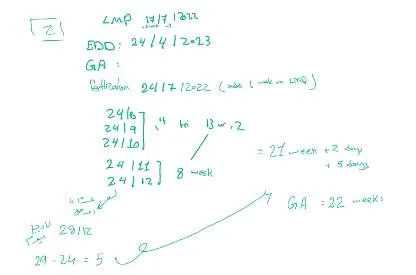 2.
LMP 17/7/2022
EDD: 24/4/2023
GA :
24/7/2022 (add 1 week on LMP)
24/8
24/9
24/10
13 w, 2
24/11
24/12
8 week
= 21 week + 2 days
+ 5 days
GA = 22 weeks
29/12
29 - 24 = 5